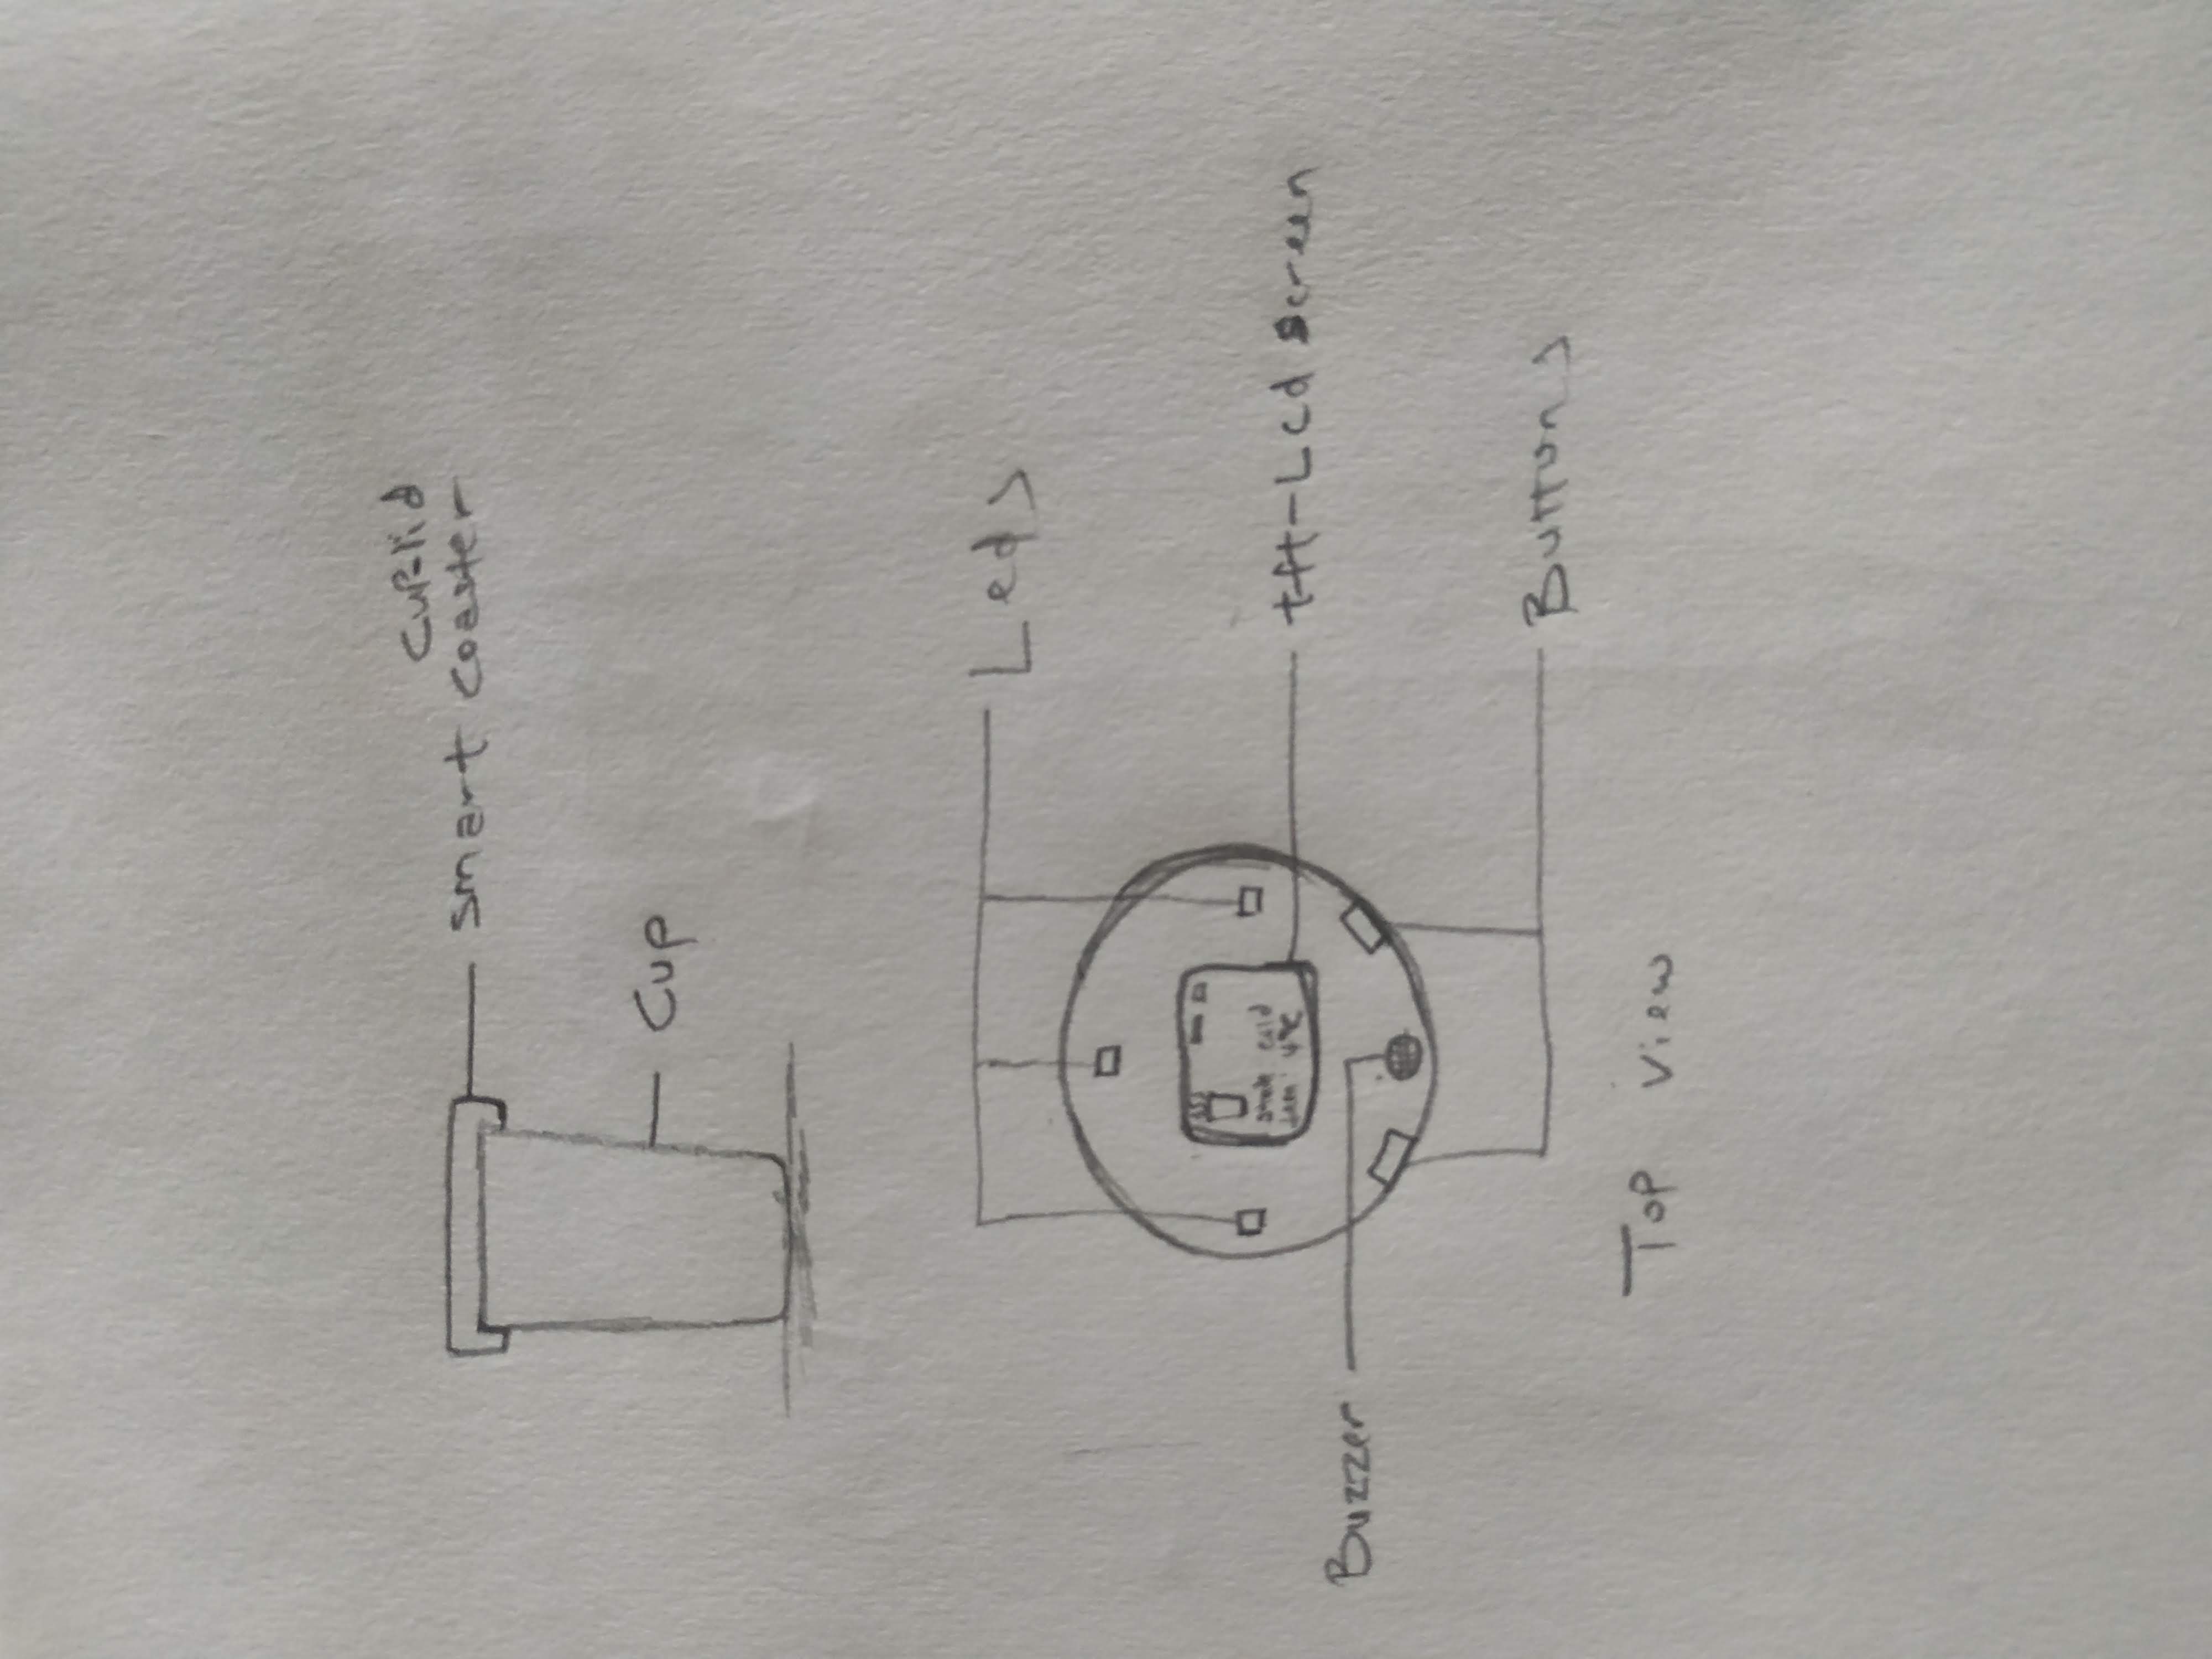 Cup-lid
smart coaster
Cup
Leds
cold
4°C
tft-Lcd screen
Buzzer
Buttons
Top view